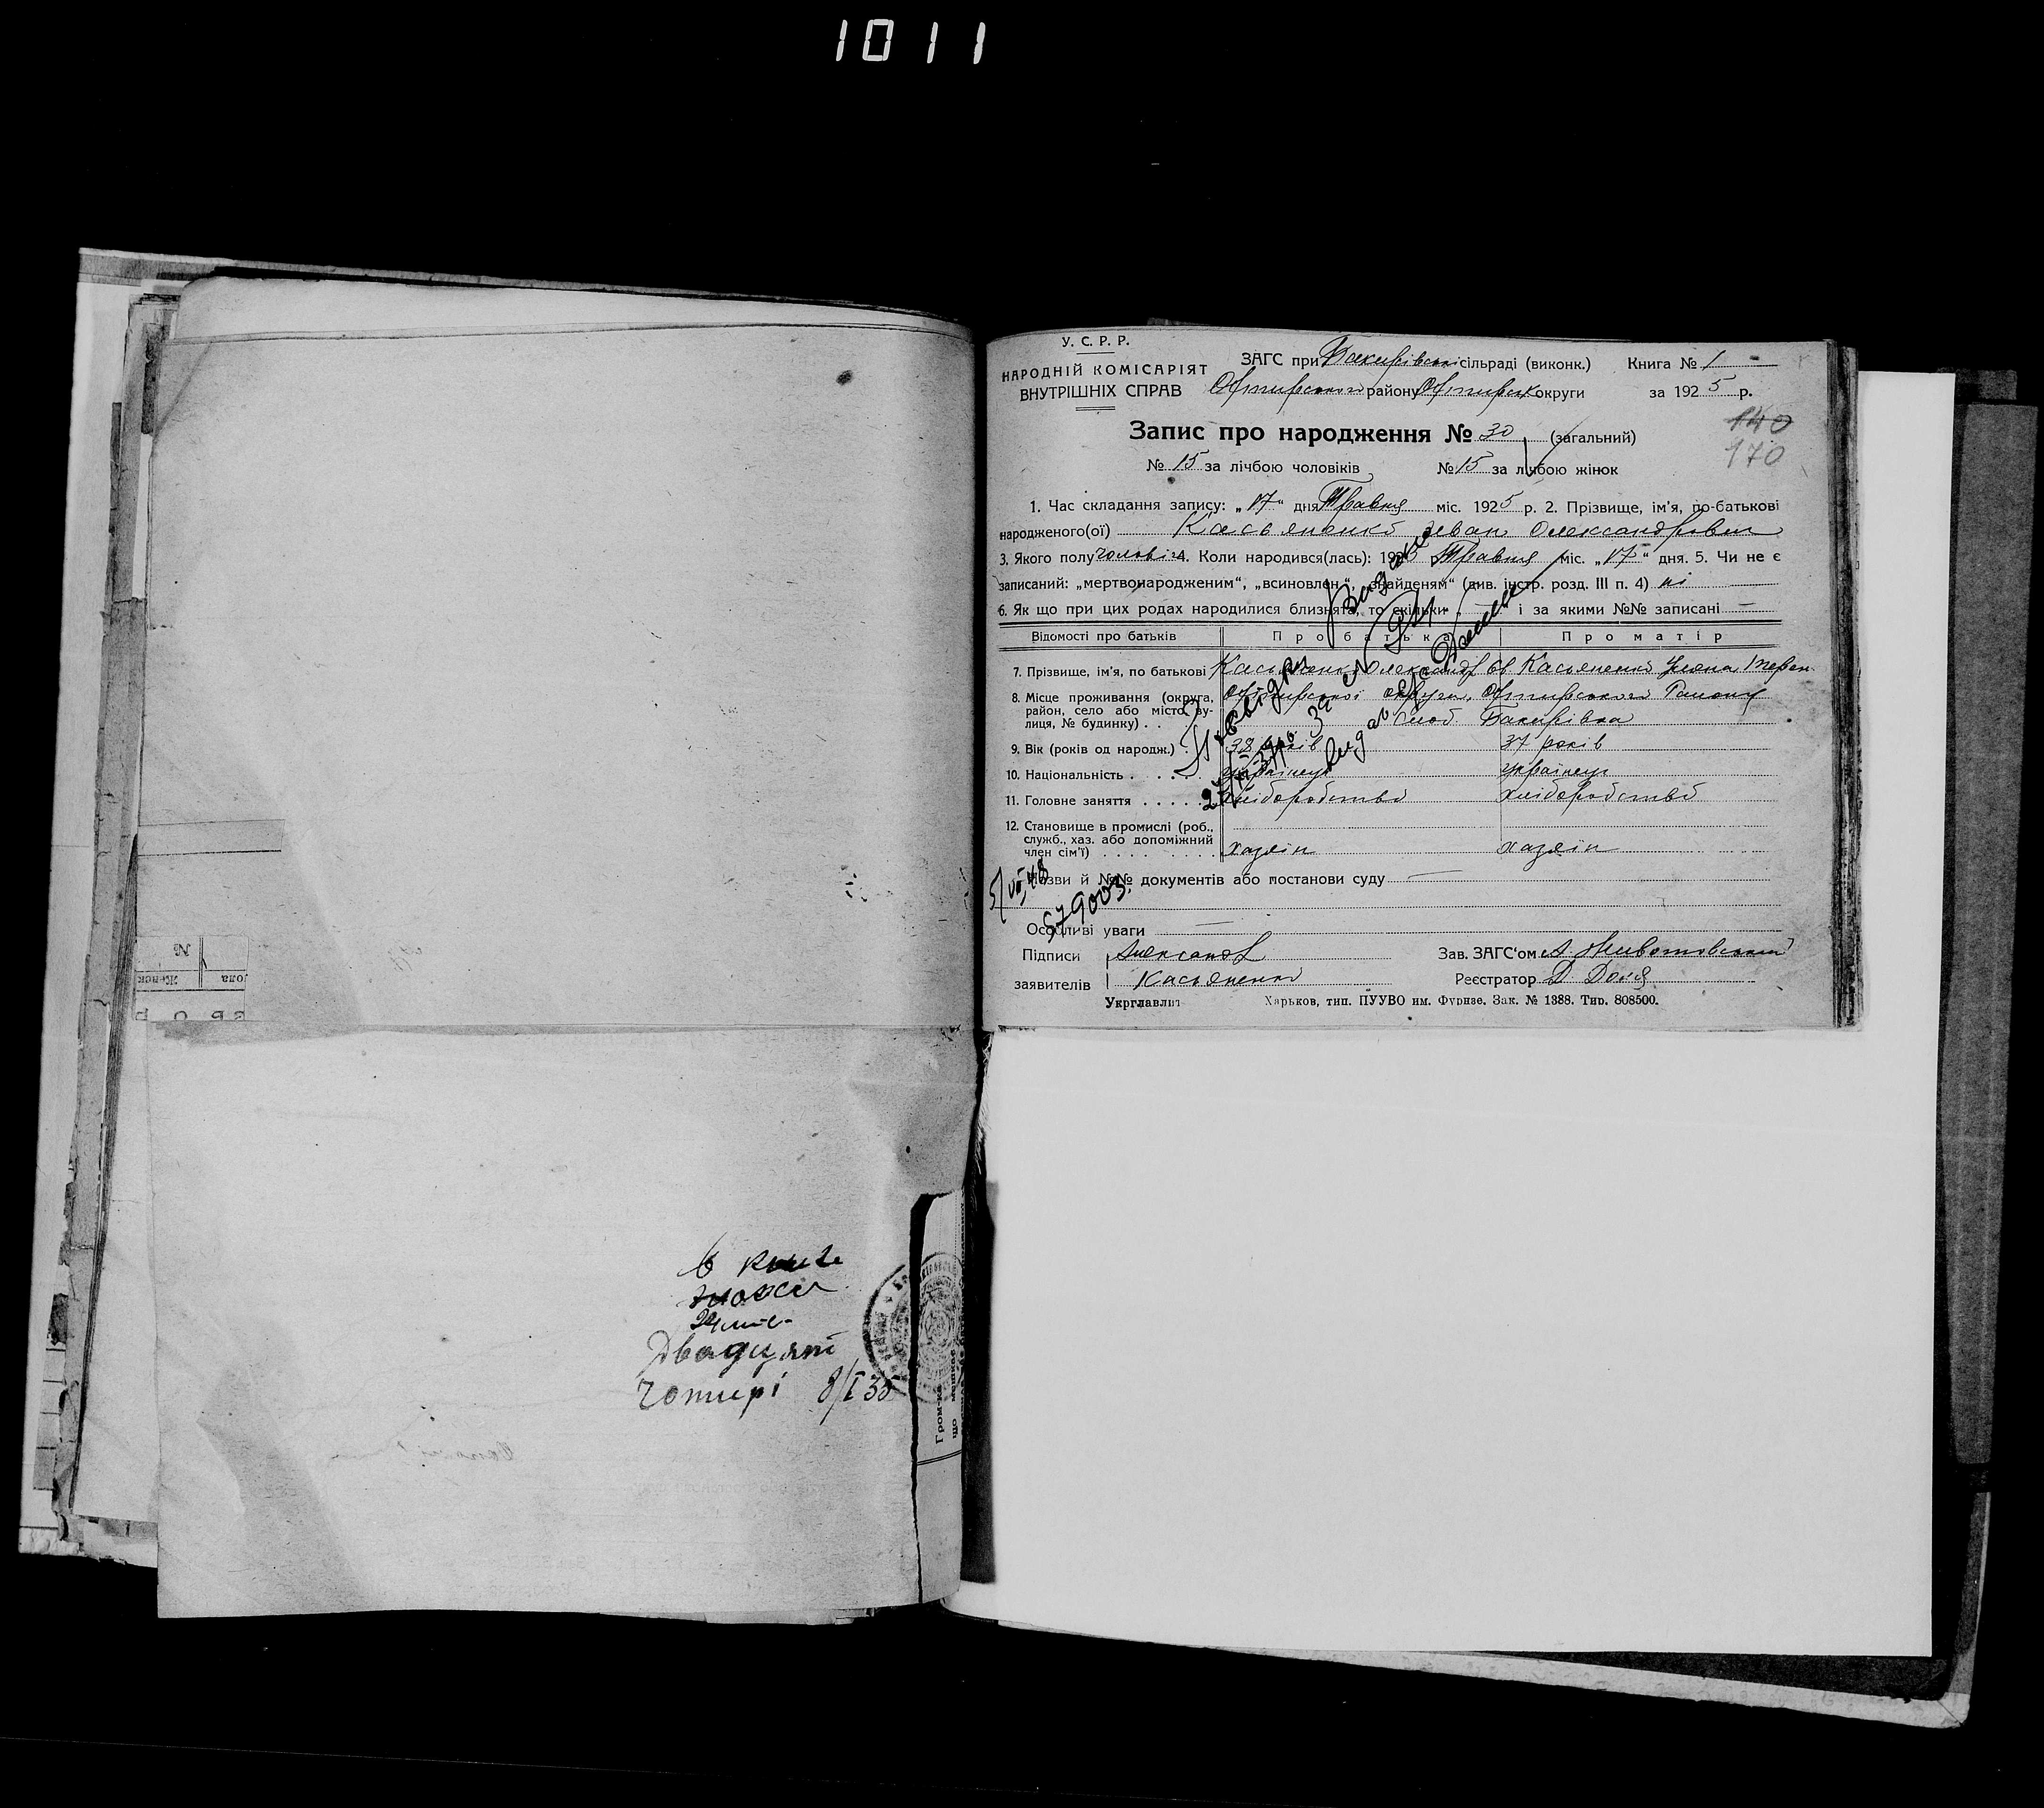 1011
№
Женск
пола
в книге
Двадцят
чотирі 8/I 35
Гром-ке
що мешкає
У. С. Р. Р.
НАРОДНІЙ КОМІСАРІЯТ
ВНУТРІШНІХ СПРАВ
ЗАГС при Бакирівські сільраді (виконк.) Книга № 1 -
Охтирського району Охтирськ округи за 1925 р.
140
170
Запис про народження № 30 (загальний)
№ 15 за лічбою чоловіків № 15 за лічбою жінок
1. Час складання запису: „17“ дня Травня міс. 1925 р. 2. Прізвище, ім'я, по-батькові
народженого(ої) Касьяненко Іван Олександрович
3. Якого полу чоловіч 4. Коли народився(лась): 1925 Травня міс. „17“ дня. 5. Чи не є
записаний: „мертвонародженим“, „всиновлен“, „знайденям“ (див. інстр. розд. III п. 4) ні
6. Як що при цих родах народилися близнята, то скільки — і за якими №№ записані —
Відомості про батьків Про батька Про матір
7. Прізвище, ім'я, по батькові Касьяненко Олександ Касьяненко Уляна
8. Місце проживання (округа, район, село або місто, вулиця, № будинку) . . Охтирської округи, Охтирського Району
Слоб. Бакирівка
9. Вік (років од народж.) . 38 років 37 років
10. Національність . . . . українець українець
11. Головне заняття . . . . . хліборобство хліборобство
12. Становище в промислі (роб., служб., хаз. або допоміжний член сім'ї) . . . . хазяїн хазяїн
Назви й №№ документів або постанови суду —
5/VI 48
579003.
Особливі уваги —
Підписи Александ Зав. ЗАГС'ом А. Животовський
заявителів Касьяненко Реєстратор Д. Доля
Укрглавліт Харьков, тип. ПУУВО им. Фрунзе. Зак. № 1388. Тир. 808500.